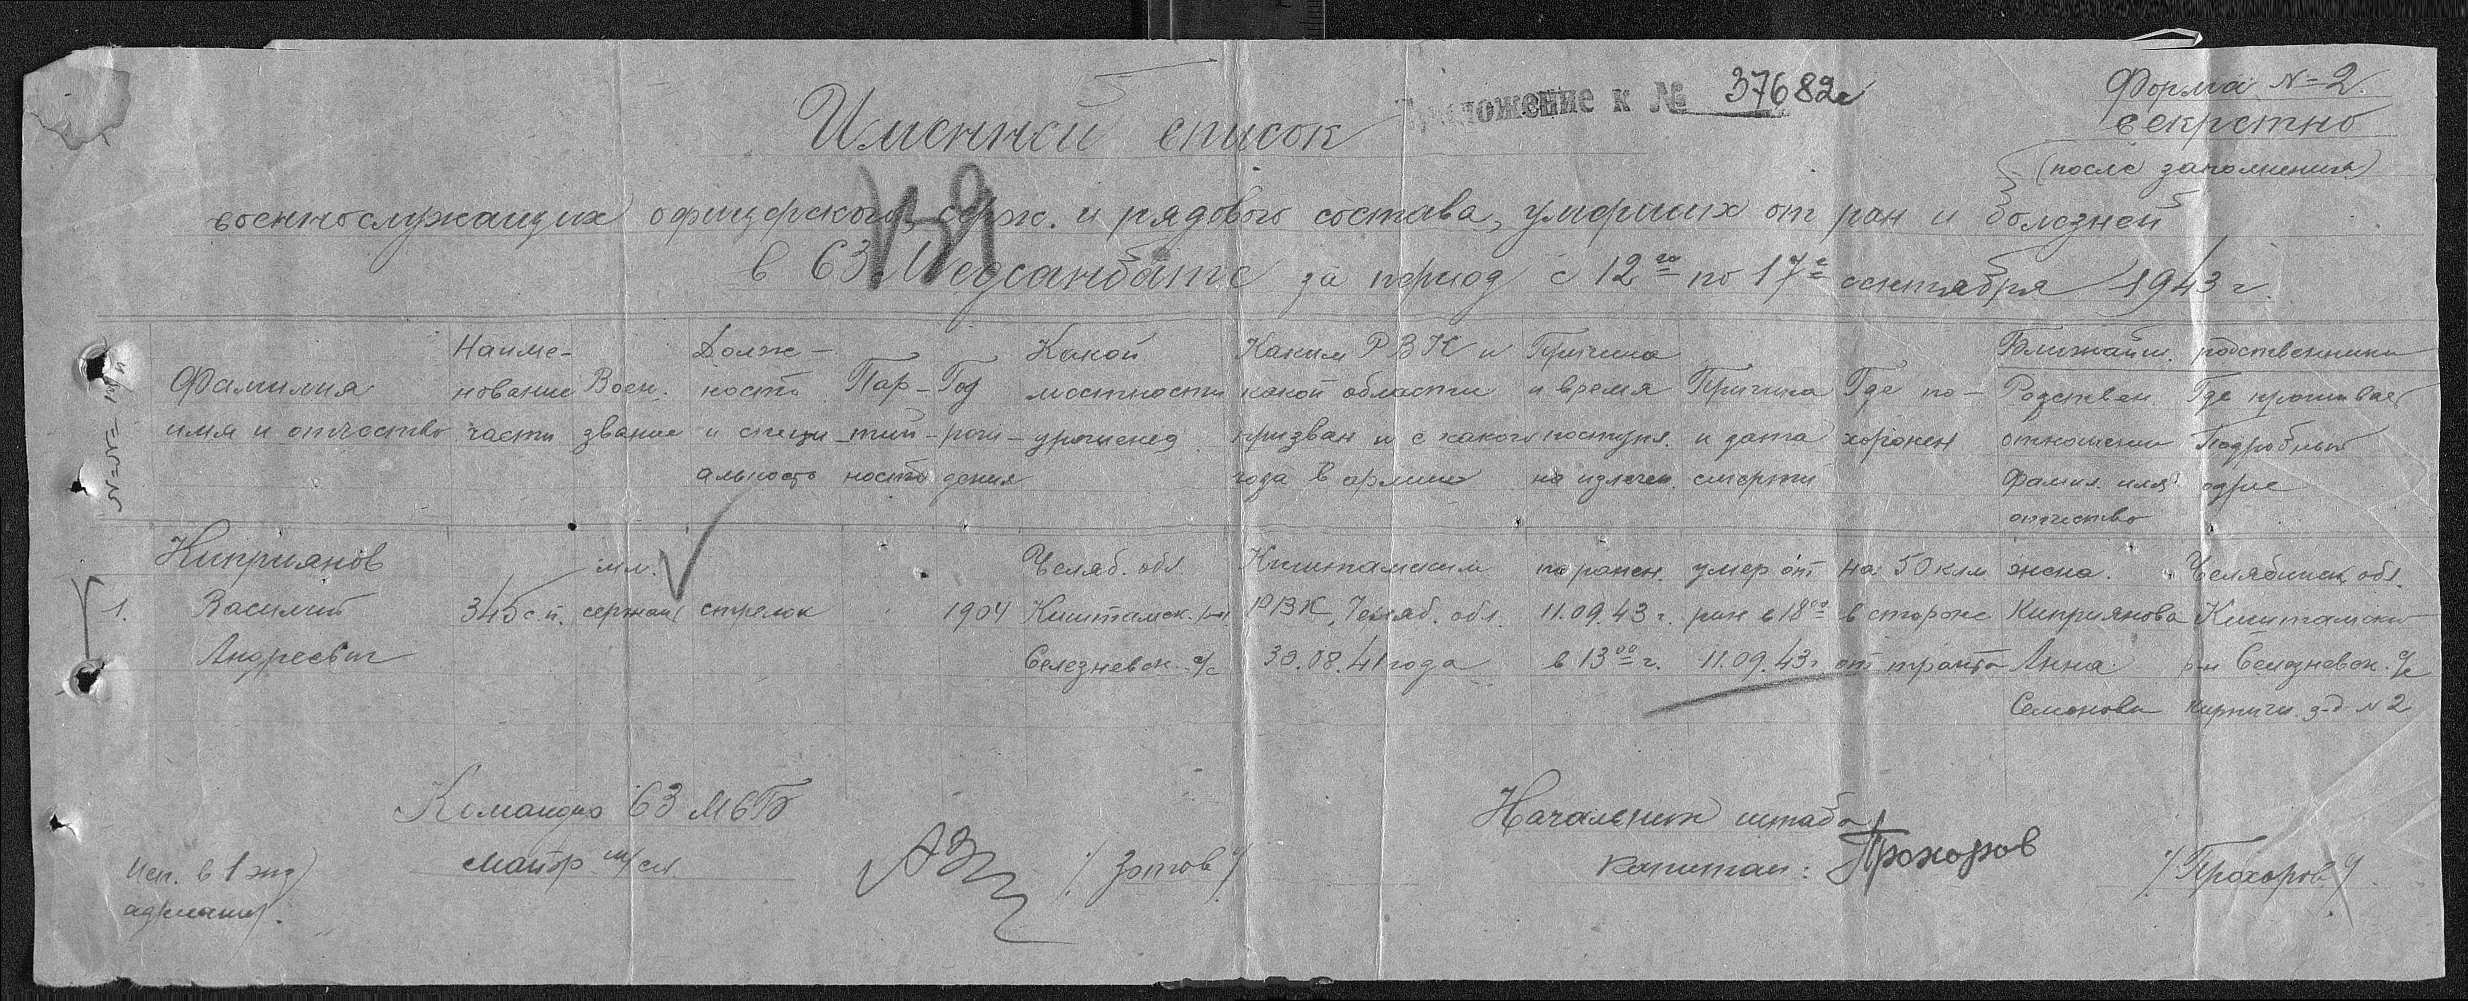 Приложение к № 37682с
Форма № 2.
секретно
(после заполнения)
Именной список
военнослужащих офицерского, серж. и рядового состава, умерших от ран и болезней
в 63 Медсанбате за период с 12го по 17е сентября 1943 г.
Фамилия имя и отчество
Наименование части
Воен. звание
Должность и специальность
Партийность
Год рождения
Какой местности уроженец
Каким РВК и какой области призван и с какого года в армии
Причина и время поступл. на излечен.
Причина и дата смерти
Где похоронен
Ближайш. родственники
Родствен. отношение фамил. имя отчество
Где проживает Подробный адрес
1. Киприянов Василий Андреевич
345 с.п.
мл. сержант
стрелок
1904
Челяб. обл. Кыштамск. р-н Селезневск. с/с
Кыштамским РВК, Челяб. обл. 30.08.41 года
по ранен. 11.09.43 г. в 13 00 г.
умер от ран в 18 00 11.09.43 г
на 50 клм в стороне от тракта
жена. Киприянова Анна Семенова
Челябинск. обл. Кыштамский р-н Селезневск. с/с кирпичн. з-д № 2
Командир 63 МСБ
майор м/сл.
/Зотов/
Начальник штаба
капитан: Прохоров
/Прохоров/
Исп. в 1 экз